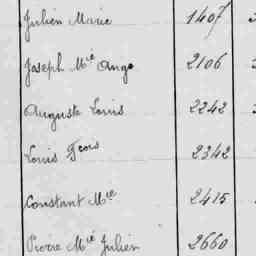 Julien Marie 1407
Joseph Mie Ange 2106
Auguste Louis 2242
Louis Fcois 2342
Constant Mie 2415
Pierre Mie Julien 2660